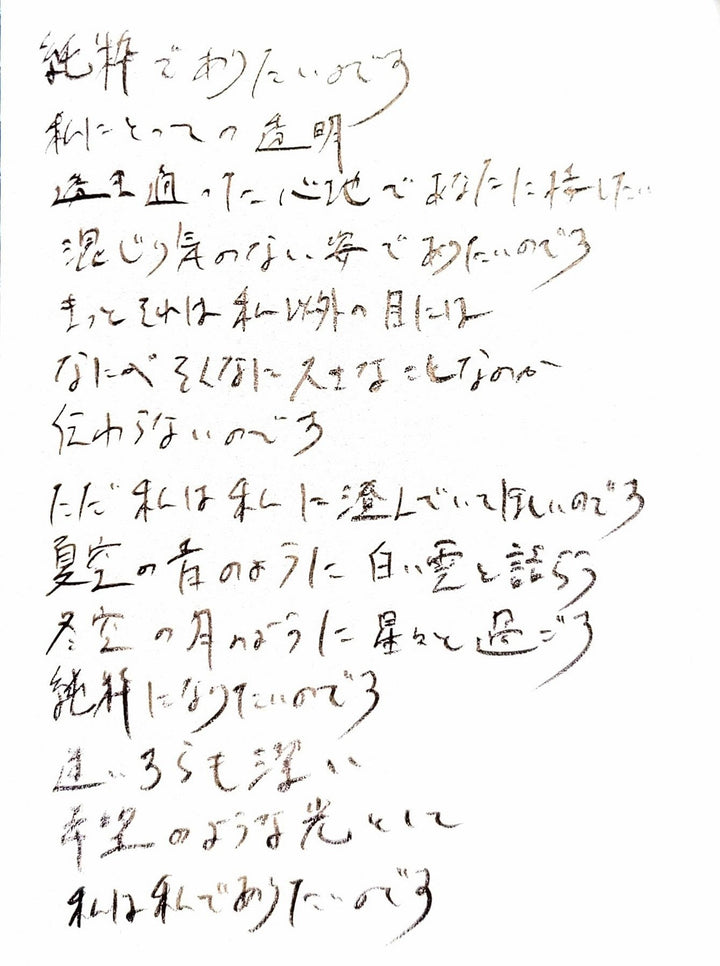 純粋でありたいのです
私にとっての透明
透き通った心地であなたに接したい
混じり気のない姿でありたいのです
きっとそれは私以外の目には
なにがそんなに大事なことなのか
伝わらないのです
ただ私は私に澄んでいてほしいのです
夏空の青のように白い雲と語らう
冬空の月のように星々と過ごす
純粋になりたいのです
すらも深い
希望のような光として
私は私でありたいのです